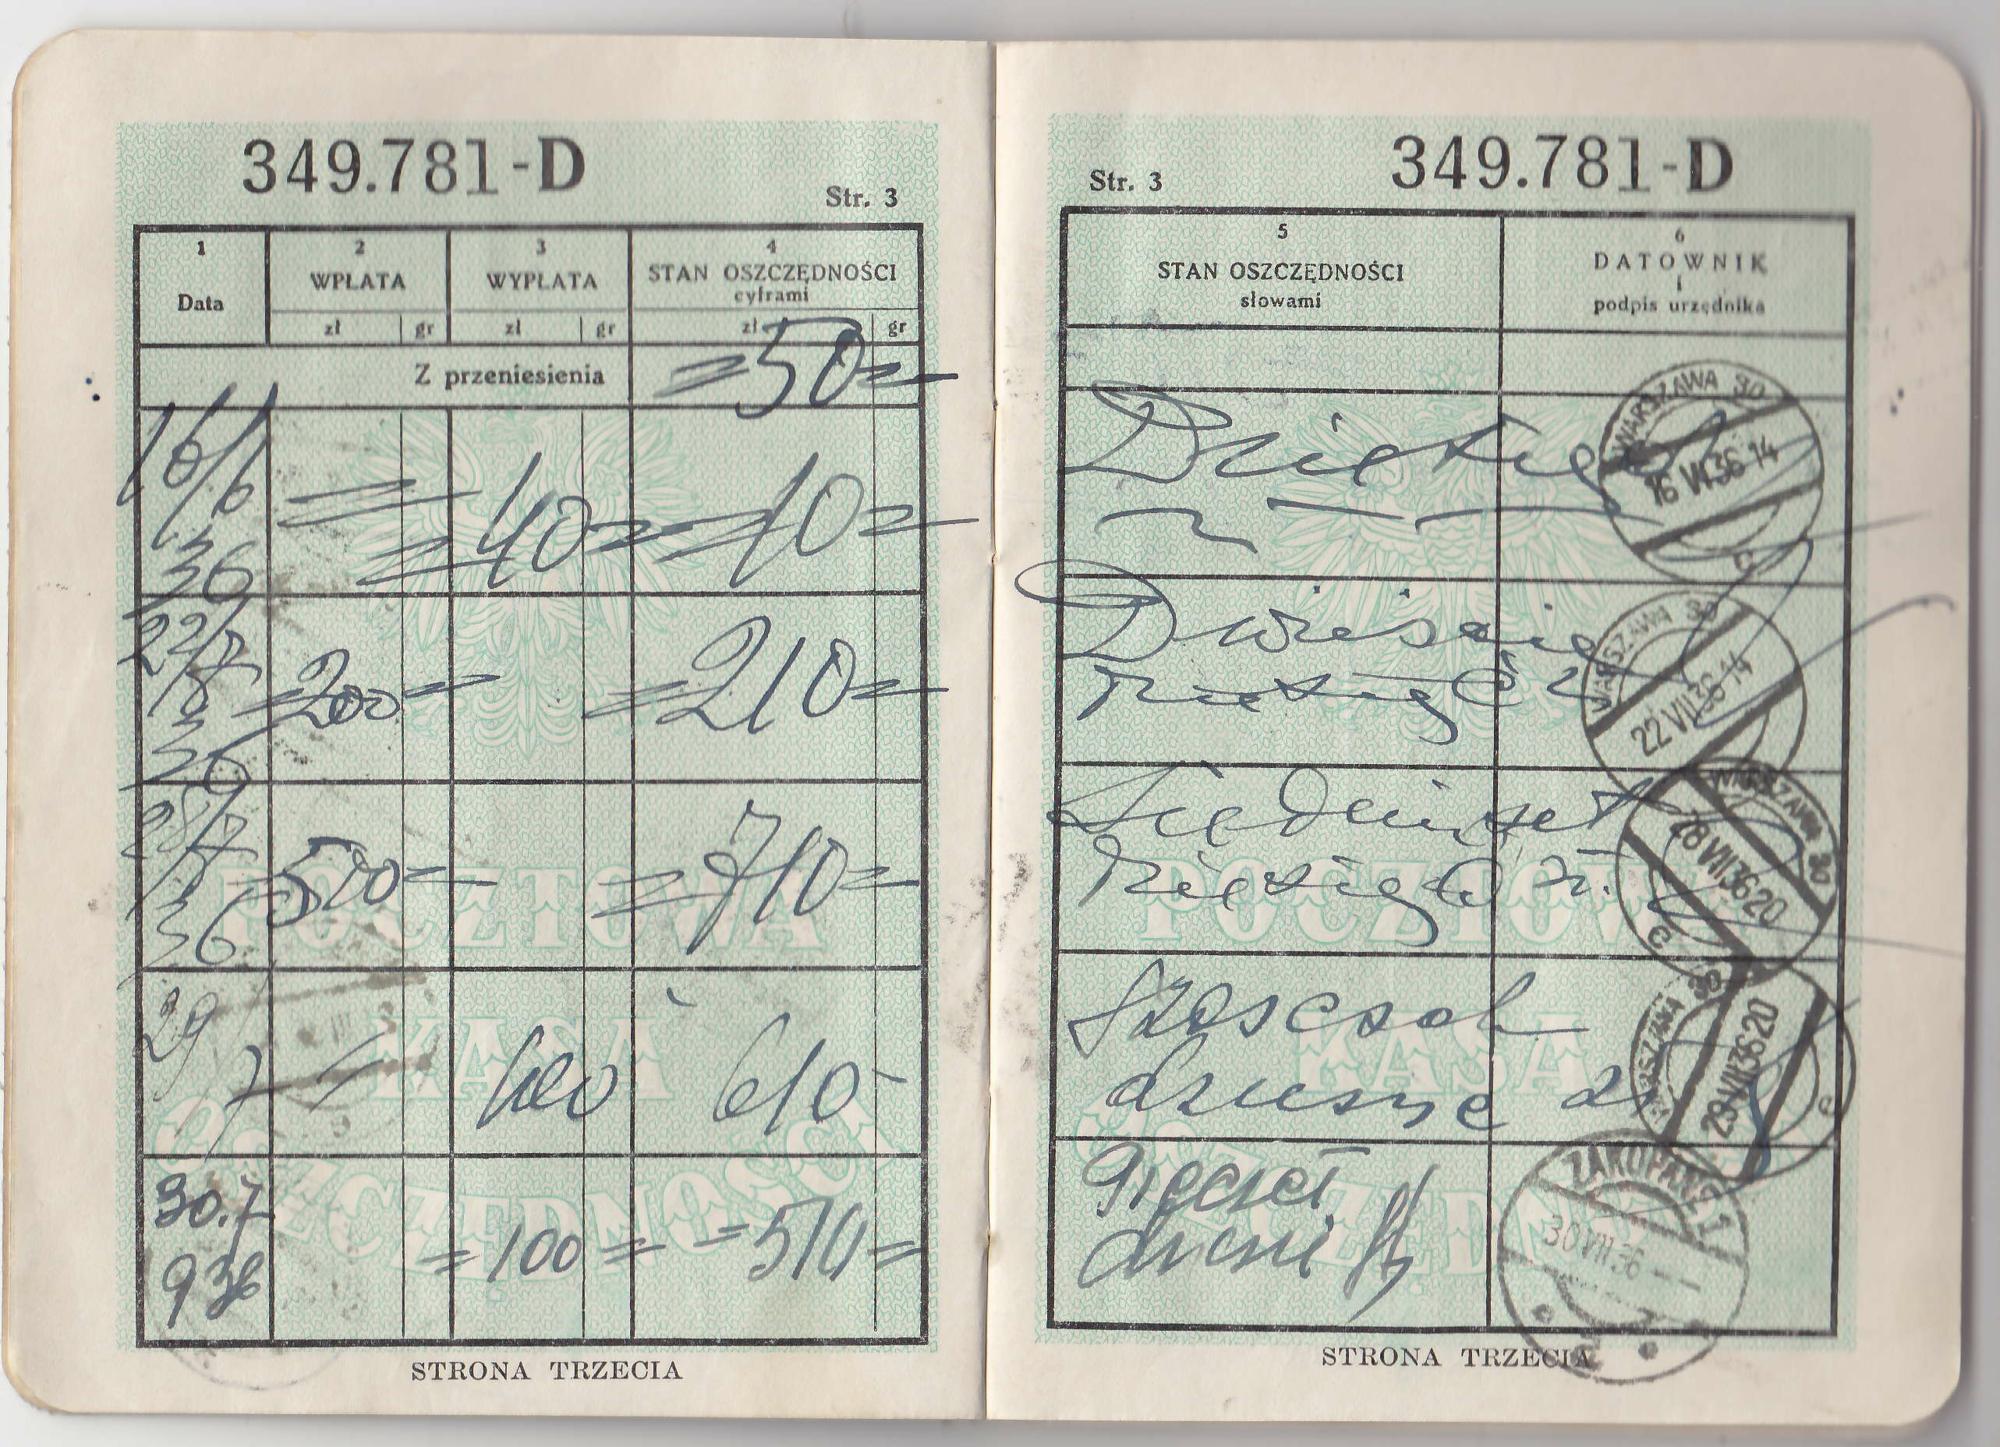 349.781-D
Str. 3
1
Data
2
WPŁATA
zł gr
3
WYPŁATA
zł gr
4
STAN OSZCZĘDNOŚCI
cyframi
zł gr
Z przeniesienia =50=
16/6 36 = =40= =10=
22/7 36 =200= =210=
28/7 36 =500= =710=
29/7 100 610
30.7 936 =100= =510=
POCZTOWA
KASA
OSZCZĘDNOŚCI
STRONA TRZECIA
Str. 3
349.781-D
5
STAN OSZCZĘDNOŚCI
słowami
6
DATOWNIK
i
podpis urzędnika
Dziesięć
WARSZAWA 30
16 VI 36 14
c
Dwieście
dziesięć zł
WARSZAWA 30
22 VII 36 14
Siedemset
dziesięć zł.
WARSZAWA 30
28 VII 36 20
c
Sześćset
dziesięć zł
WARSZAWA 30
29 VII 36 20
c
Pięćset
ZAKOPANE 1
30 VII 36
POCZTOWA
KASA
STRONA TRZECIA